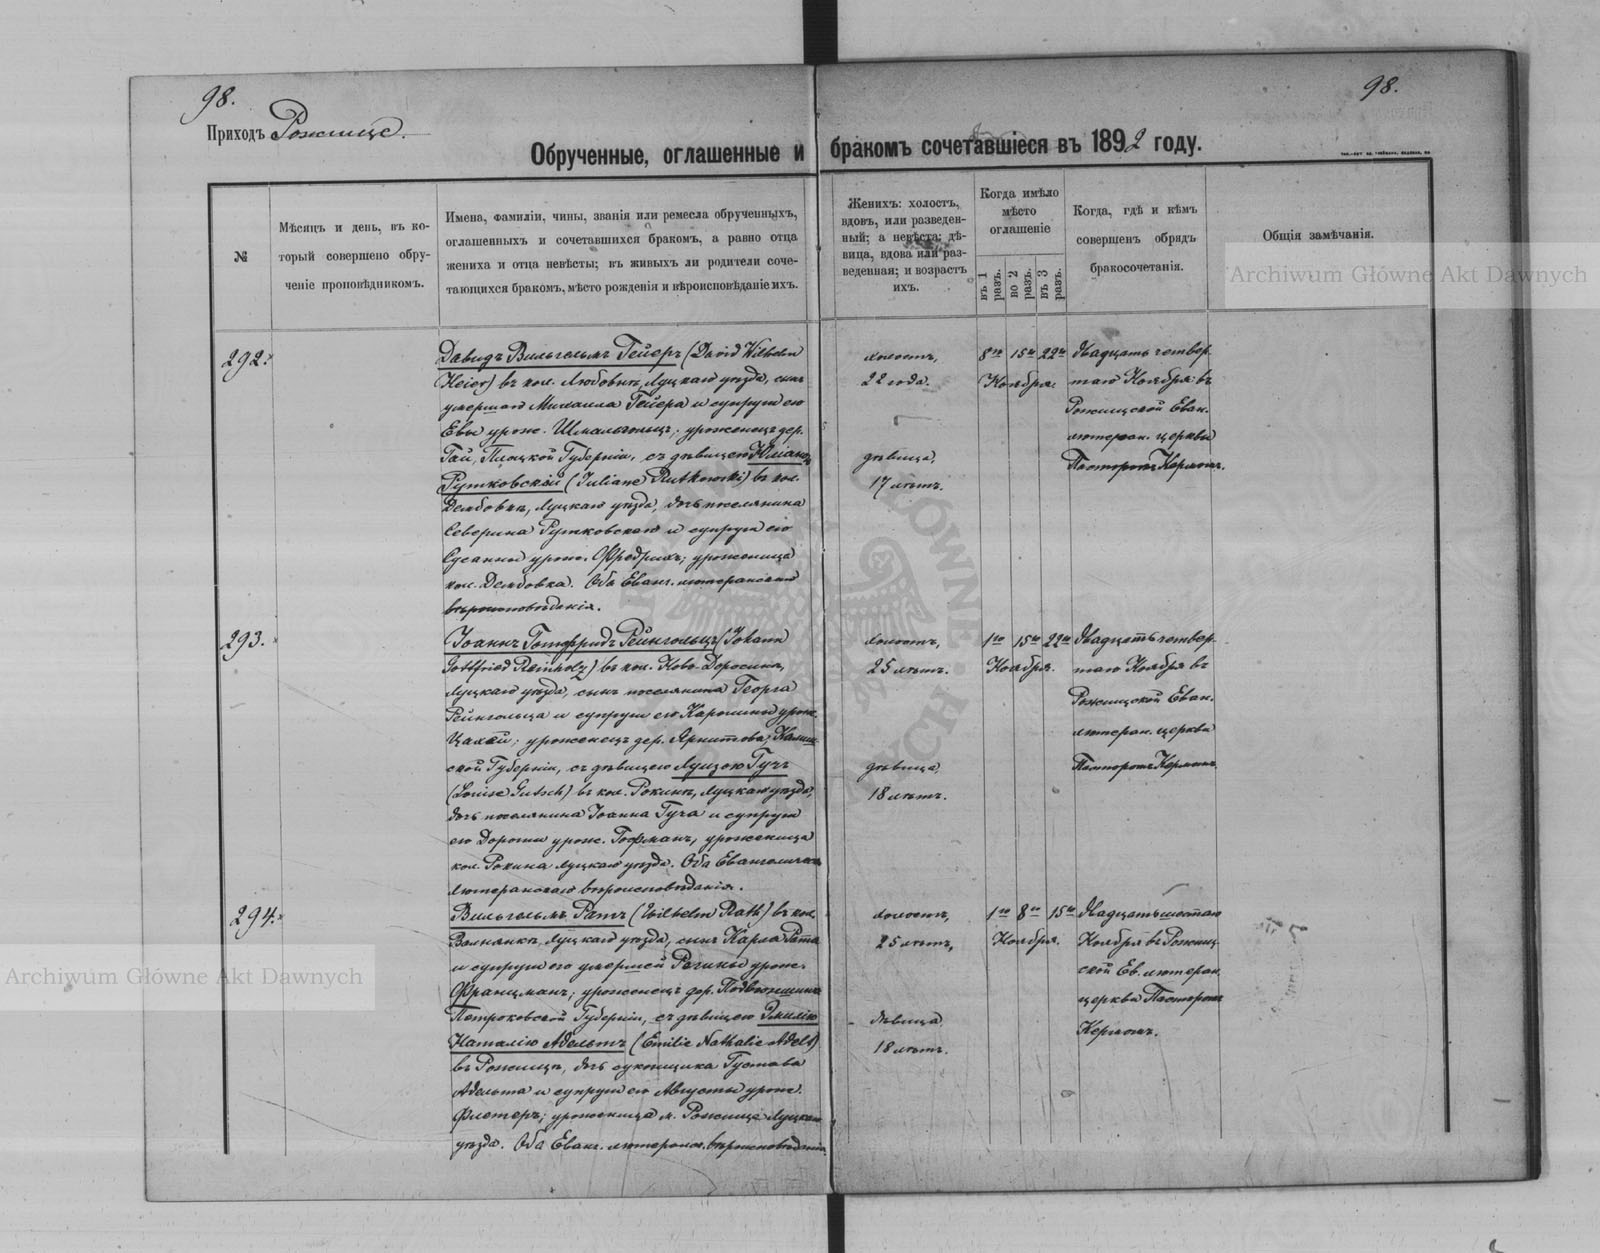 98.
98.
Приходъ Рожище.
Обрученные, оглашенные и бракомъ сочетавшіеся въ 1892 году.
№
Мѣсяцъ и день, въ ко-
торый совершено обру-
ченіе проповѣдникомъ.
Имена, фамиліи, чины, званія или ремесла обрученныхъ,
оглашенныхъ и сочетавшихся бракомъ, а равно отца
жениха и отца невѣсты; въ живыхъ ли родители соче-
тающихся бракомъ, мѣсто рожденія и вѣроисповѣданіе ихъ.
Женихъ: холостъ,
вдовъ, или разведен-
ный; а невѣста: дѣ-
вица, вдова или раз-
веденная; и возрастъ
ихъ.
Когда имѣло
мѣсто
оглашеніе
въ 1 разъ.
во 2 разъ.
въ 3 разъ.
Когда, гдѣ и кѣмъ
совершенъ обрядъ
бракосочетанія.
Общія замѣчанія.
Archiwum Główne Akt Dawnych
292.
Давидъ Вильгельмъ Гейеръ (David Wilhelm
Heier) въ кол. Любовкѣ, Луцкаго уѣзда, сынъ
умершаго Михаила Гейера и супруги его
Евы урож. ; уроженецъ дер.
Гай, Плоцкой Губерніи, съ дѣвицею Юліаною
Рутковскій (Juliane Rutkowski) въ кол.
Дембовкѣ, Луцкаго уѣзда, дочь поселянина
Северина Рутковскаго и супруги его
Сусанны урож. Фредрихъ; уроженица
кол. Дембовка. Оба Еванг. лютеранскаго
вѣроисповѣданія.
холостъ,
22 года.
дѣвица,
17 лѣтъ.
8го 15го 22го
Ноября.
двадцать четвер-
таго Ноября въ
Рожищской Еван.
лютеран. церкви
Пасторомъ Кермомъ.
293.
Іоаннъ Готфридъ Рейнгольцъ (Johann
Gottfried Reinholz) въ кол. Ново-Доросинѣ,
Луцкаго уѣзда, сынъ поселянина Георга
Рейнгольца и супруги его Каролины урож.
; уроженецъ дер. , Калиш-
ской Губерніи, съ дѣвицею Луизою Гучъ
(Louise Gutsch) въ кол. Рокинѣ, Луцкаго уѣзда,
дочь поселянина Іоанна Гуча и супруги
его Доротеи урож. Гофманъ, уроженица
кол. Рокина Луцкаго уѣзда. Оба Евангелическо
лютеранскаго вѣроисповѣданія.
холостъ,
25 лѣтъ.
дѣвица,
18 лѣтъ.
1го 15го 22го
Ноября.
двадцать четвер-
таго Ноября въ
Рожищской Еван.
лютеран. церкви
Пасторомъ Кермомъ.
294.
Вильгельмъ Ратъ (Wilhelm Rath) въ кол.
Волнянкѣ, Луцкаго уѣзда, сынъ Карла Рата
и супруги его умершей Регины урож.
Францманъ; уроженецъ дер.
Петроковской Губерніи, съ дѣвицею Эмиліею
Наталіею Адельтъ (Emilie Nathalie Adelt)
въ Рожищѣ, дочь суконщика Густава
Адельта и супруги его Августы урож.
Флетеръ; уроженица м. Рожище Луцкаго
уѣзда. Оба Еванг. лютеранск. вѣроисповѣданія.
холостъ,
25 лѣтъ,
дѣвица,
18 лѣтъ.
1го 8го 15го
Ноября.
двадцать шестаго
Ноября въ Рожищ-
ской Ев. лютеран.
церкви Пасторомъ
Кермомъ.
Archiwum Główne Akt Dawnych